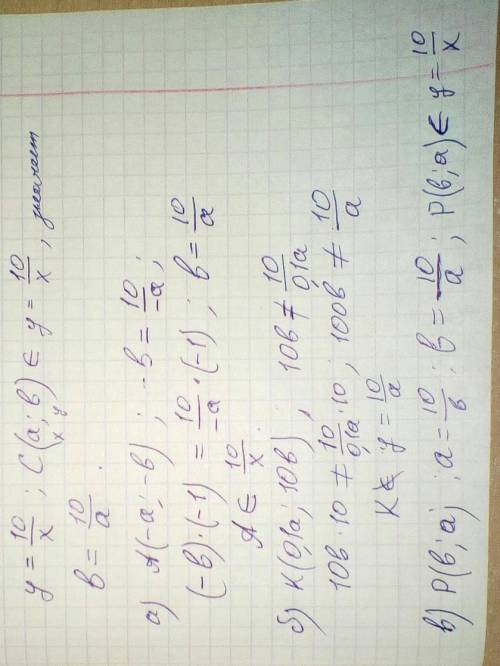 y = 10/x ; C(a; b) ∈ y = 10/x , значит
x y
b = 10/a .
а) A(-a; -b) ; -b = 10/-a ;
(-b)·(-1) = 10/-a ·(-1) ; b = 10/a
A ∈ 10/x .
б) K(0,1a; 10b) , 10b ≠ 10/0,1a
10b·10 ≠ 10/0,1a ·10 ; 100b ≠ 10/a
K ∉ y = 10/a
в) P(b; a) ; a = 10/b ; b = 10/a ; P(b; a) ∈ y = 10/x